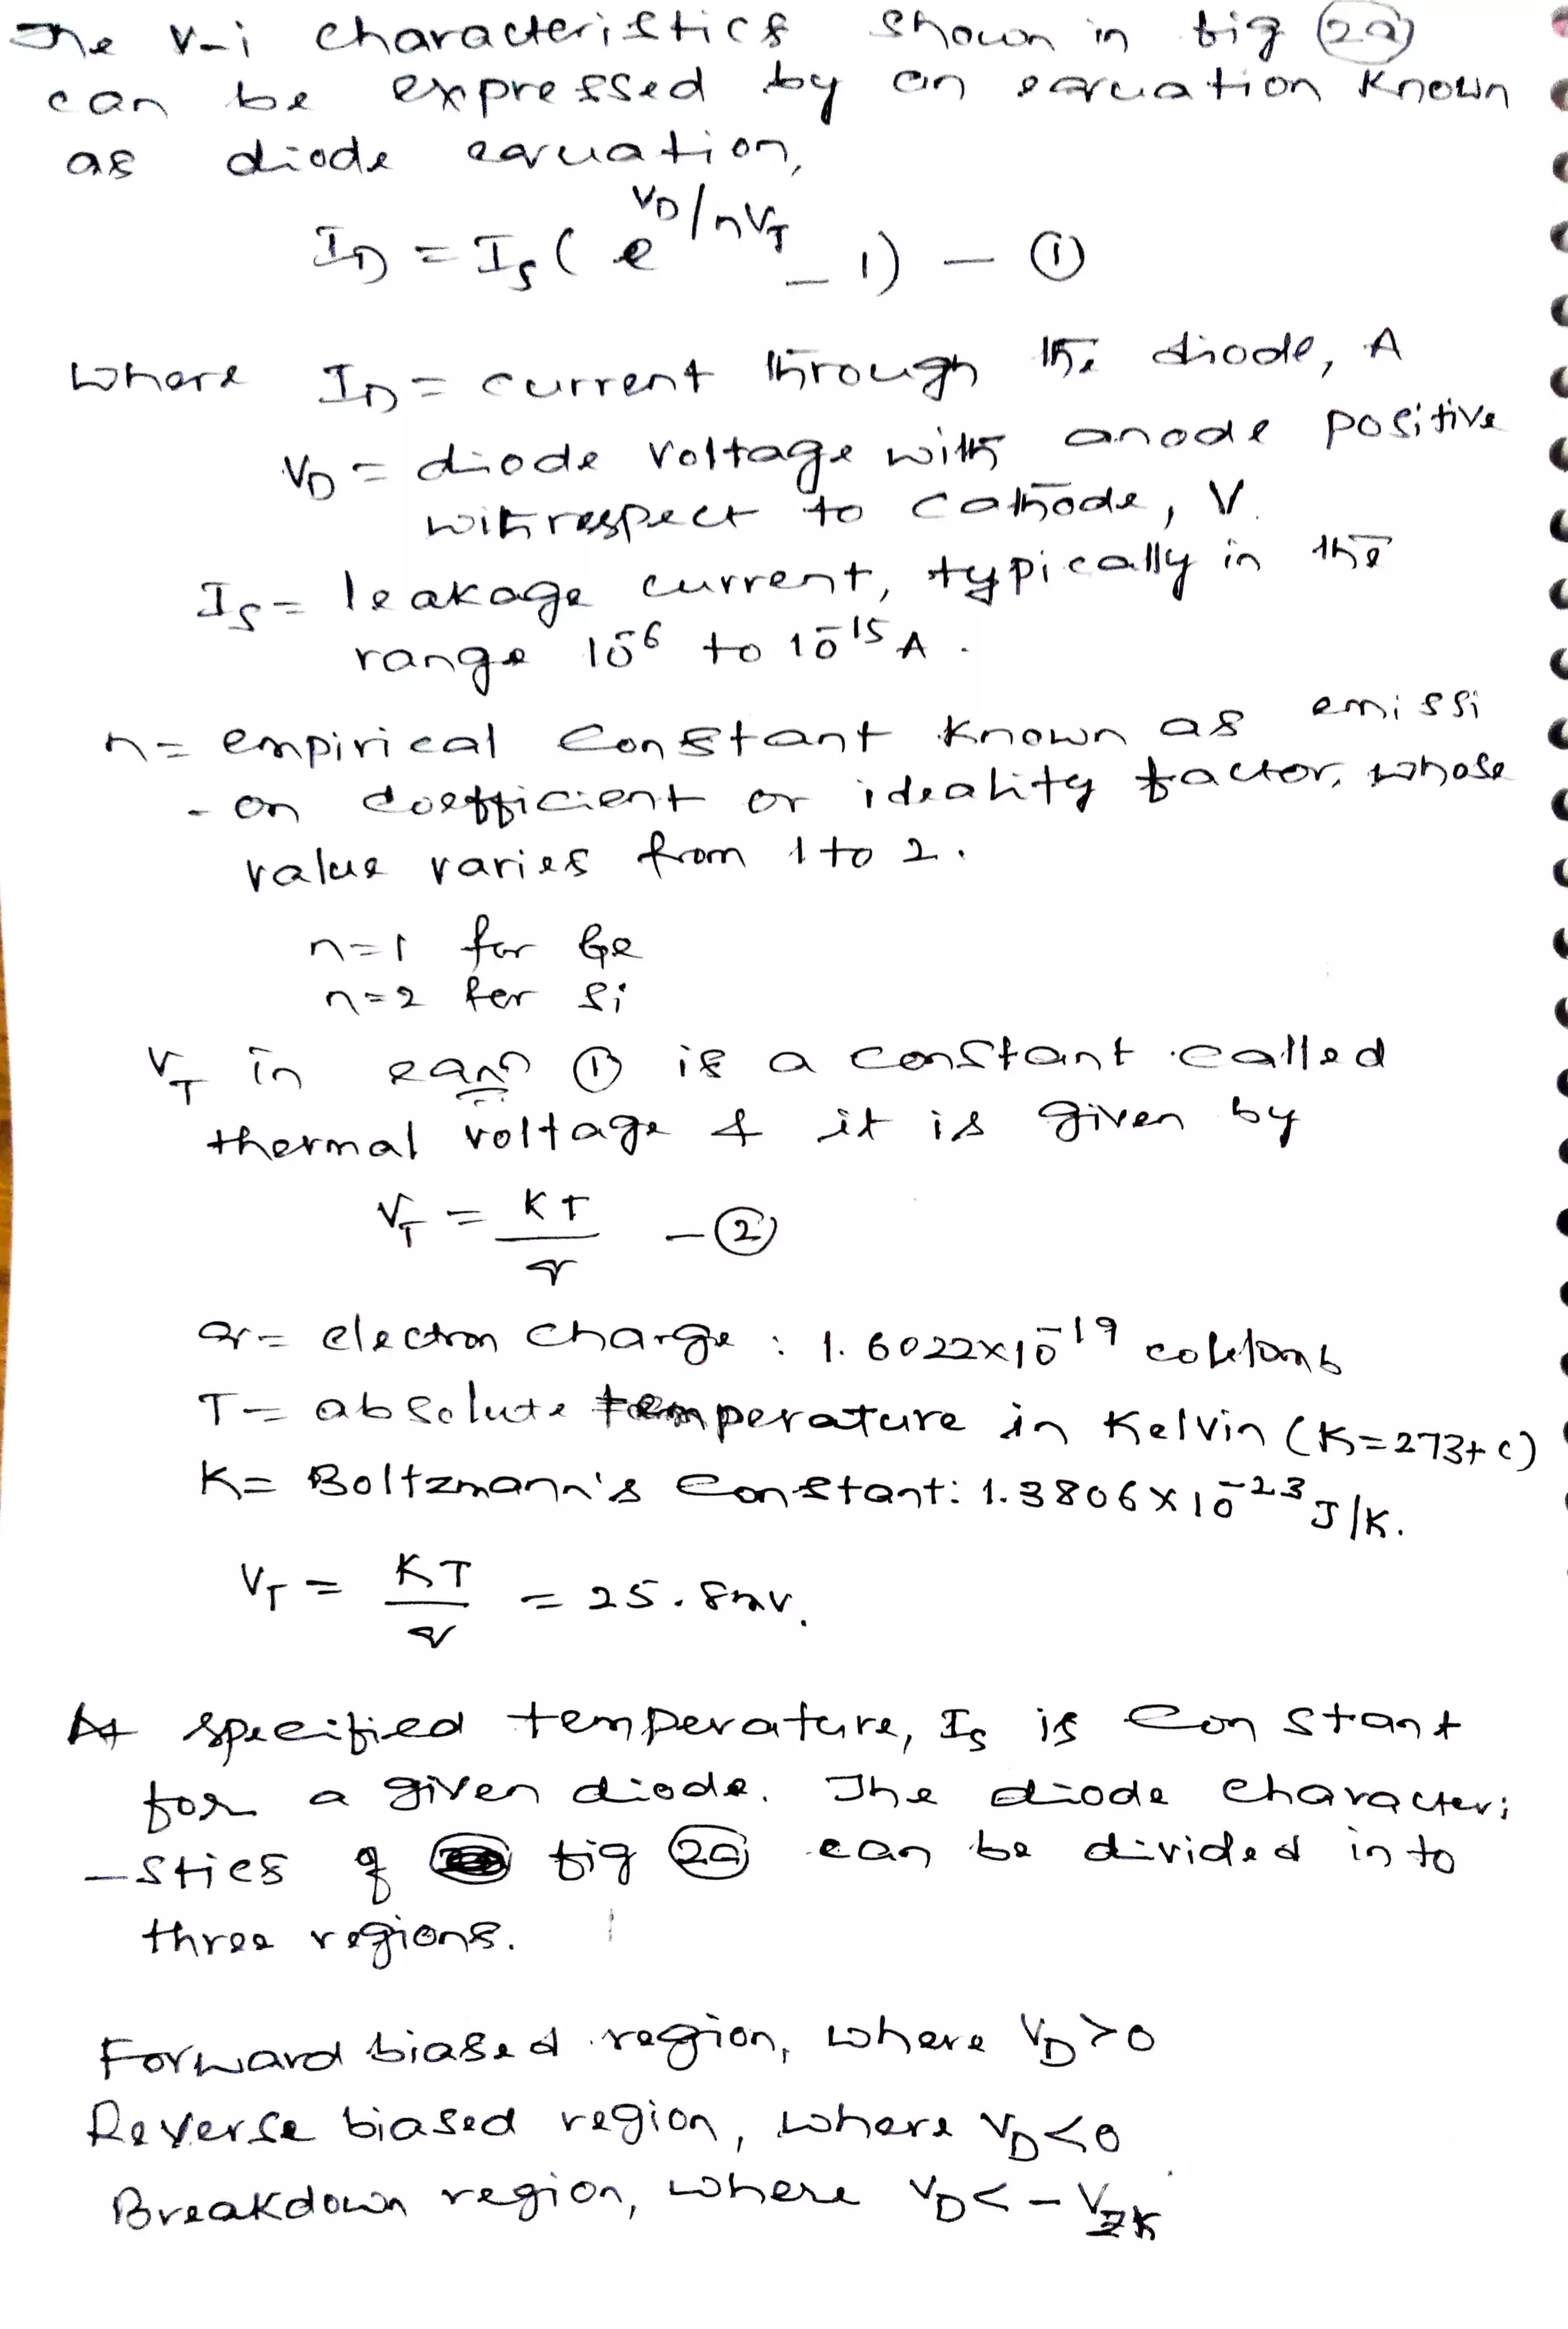 The v-i characteristics shown in fig 2a
can be expressed by an equation known
as diode equation,
I_D = I_S ( e^{V_D/nV_T} - 1) - ①
where I_D = current through the diode, A
V_D = diode voltage with anode positive
with respect to cathode, V.
I_S = leakage current, typically in the
range 10^-6 to 10^-15 A.
n = empirical constant known as emissi
-on coefficient or ideality factor, whose
value varies from 1 to 2.
n=1 for Ge
n=2 for Si
V_T in eqn ① is a constant called
thermal voltage & it is given by
V_T = KT/q - ②
q = electron charge : 1.6022×10^-19 coulomb
T = absolute temperature in Kelvin (K=273+c)
K = Boltzmann's constant: 1.3806×10^-23 J/K.
V_T = KT/q = 25.8mv.
At specified temperature, I_S is constant
for a given diode. The diode characteri
-stics of fig 2a can be divided into
three regions.
Forward biased region, where V_D>0
Reverse biased region, where V_D<0
Breakdown region, where V_D < -V_ZK